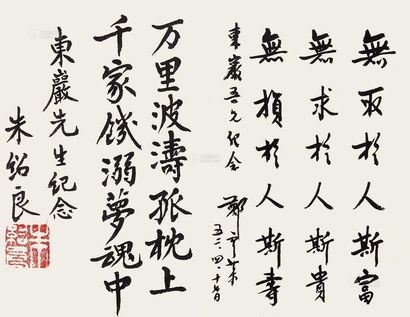 無取於人斯富
無求於人斯貴
無損於人斯壽
東巖吾兄紀念
鄭
五三·四·十
万里波濤孤枕上
千家饑溺夢魂中
東巖先生紀念
朱紹良